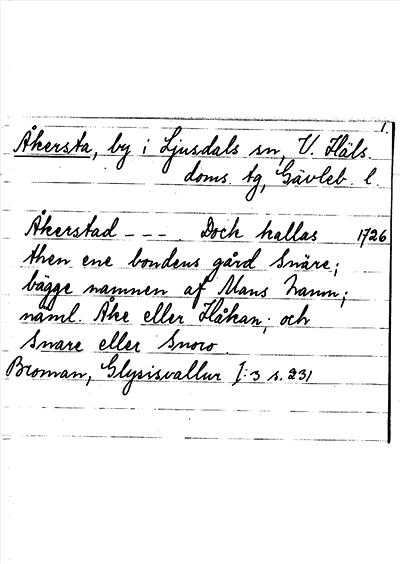 1.
Åkersta, by i Ljusdals sn, V. Häls.
doms. tg, Gävleb. l.
Åkerstad --- Dock kallas 1726
then ene bondens gård Snäre;
bägge namnen af Mans Namn;
näml. Åke eller Håkan; och
Snare eller Snoro.
Broman, Glysisvallur I:3 s. 231